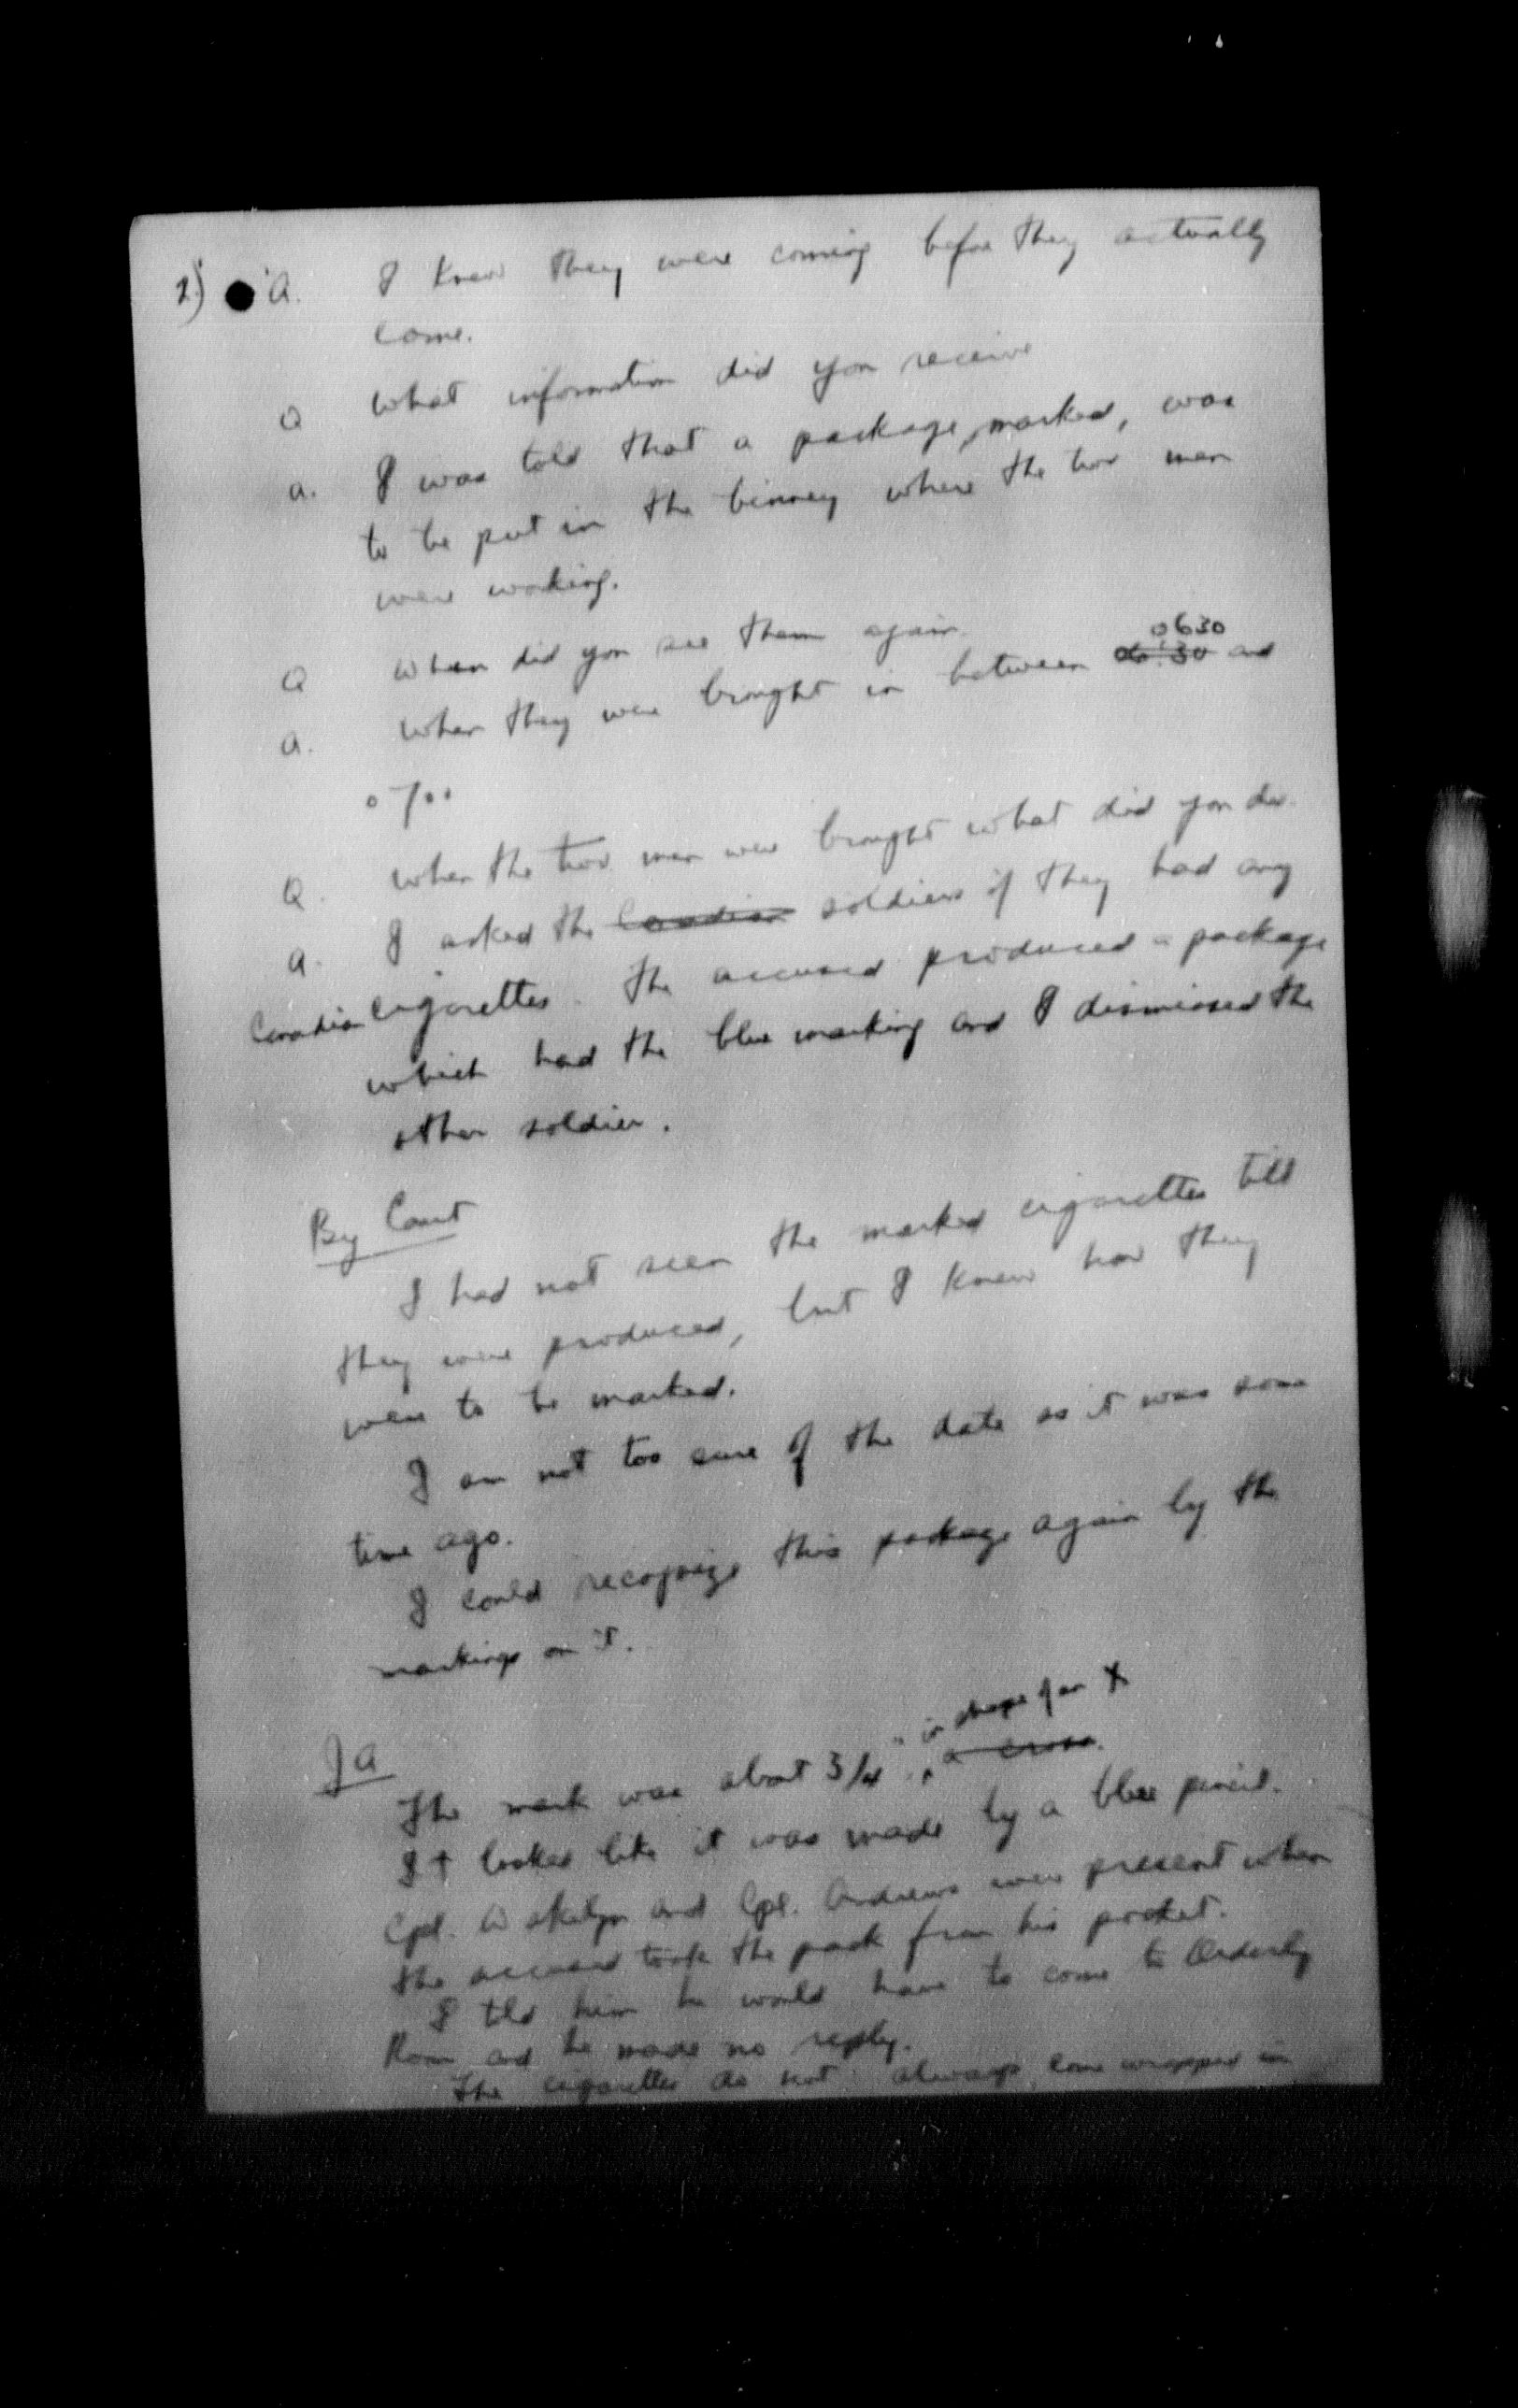 2) A. I knew they were coming before they actually
came.
Q What information did you receive
A. I was told that a package, marked, was
to be put in the where the two men
were working.
Q When did you see them again.
A. When they were brought in between 06:30 0630 and
0700
Q. When the two men were brought what did you do.
A. I asked the Canadian soldiers if they had any
Canadian cigarettes. The accused produced a package
which had the blue marking and I dismissed the
other soldier.
By Court
I had not seen the marked cigarettes till
they were produced, but I knew how they
were to be marked.
I am not too sure of the date as it was some
time ago.
I could recognize this package again by the
markings on it.
in shape of an X
JA
The mark was about 3/4", a cross.
It looked like it was made by a blue pencil.
Cpl. and Cpl. Andrews were present when
the accused took the pack from his pocket.
I told him he would have to come to Orderly
Room and he made no reply.
The cigarettes do not always come wrapped in